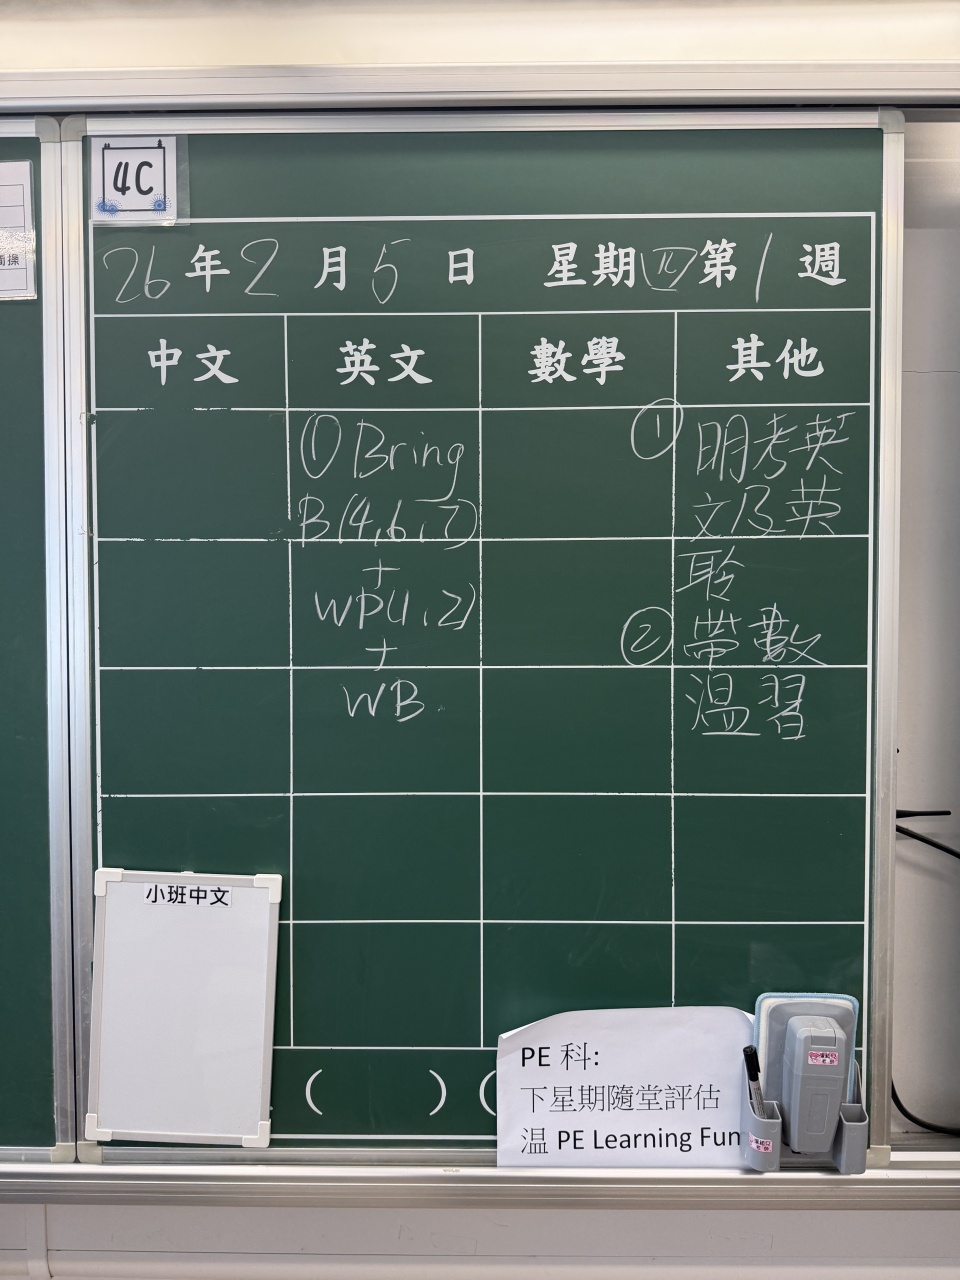 4C
26年2月5日 星期四第1週
中文 英文 數學 其他
① Bring
B(4,6,7)
+
WP(1,2)
+
WB
① 明考英
文及英
聆
② 帶數
溫習
小班中文
( ) (
PE 科:
下星期隨堂評估
温 PE Learning Fun